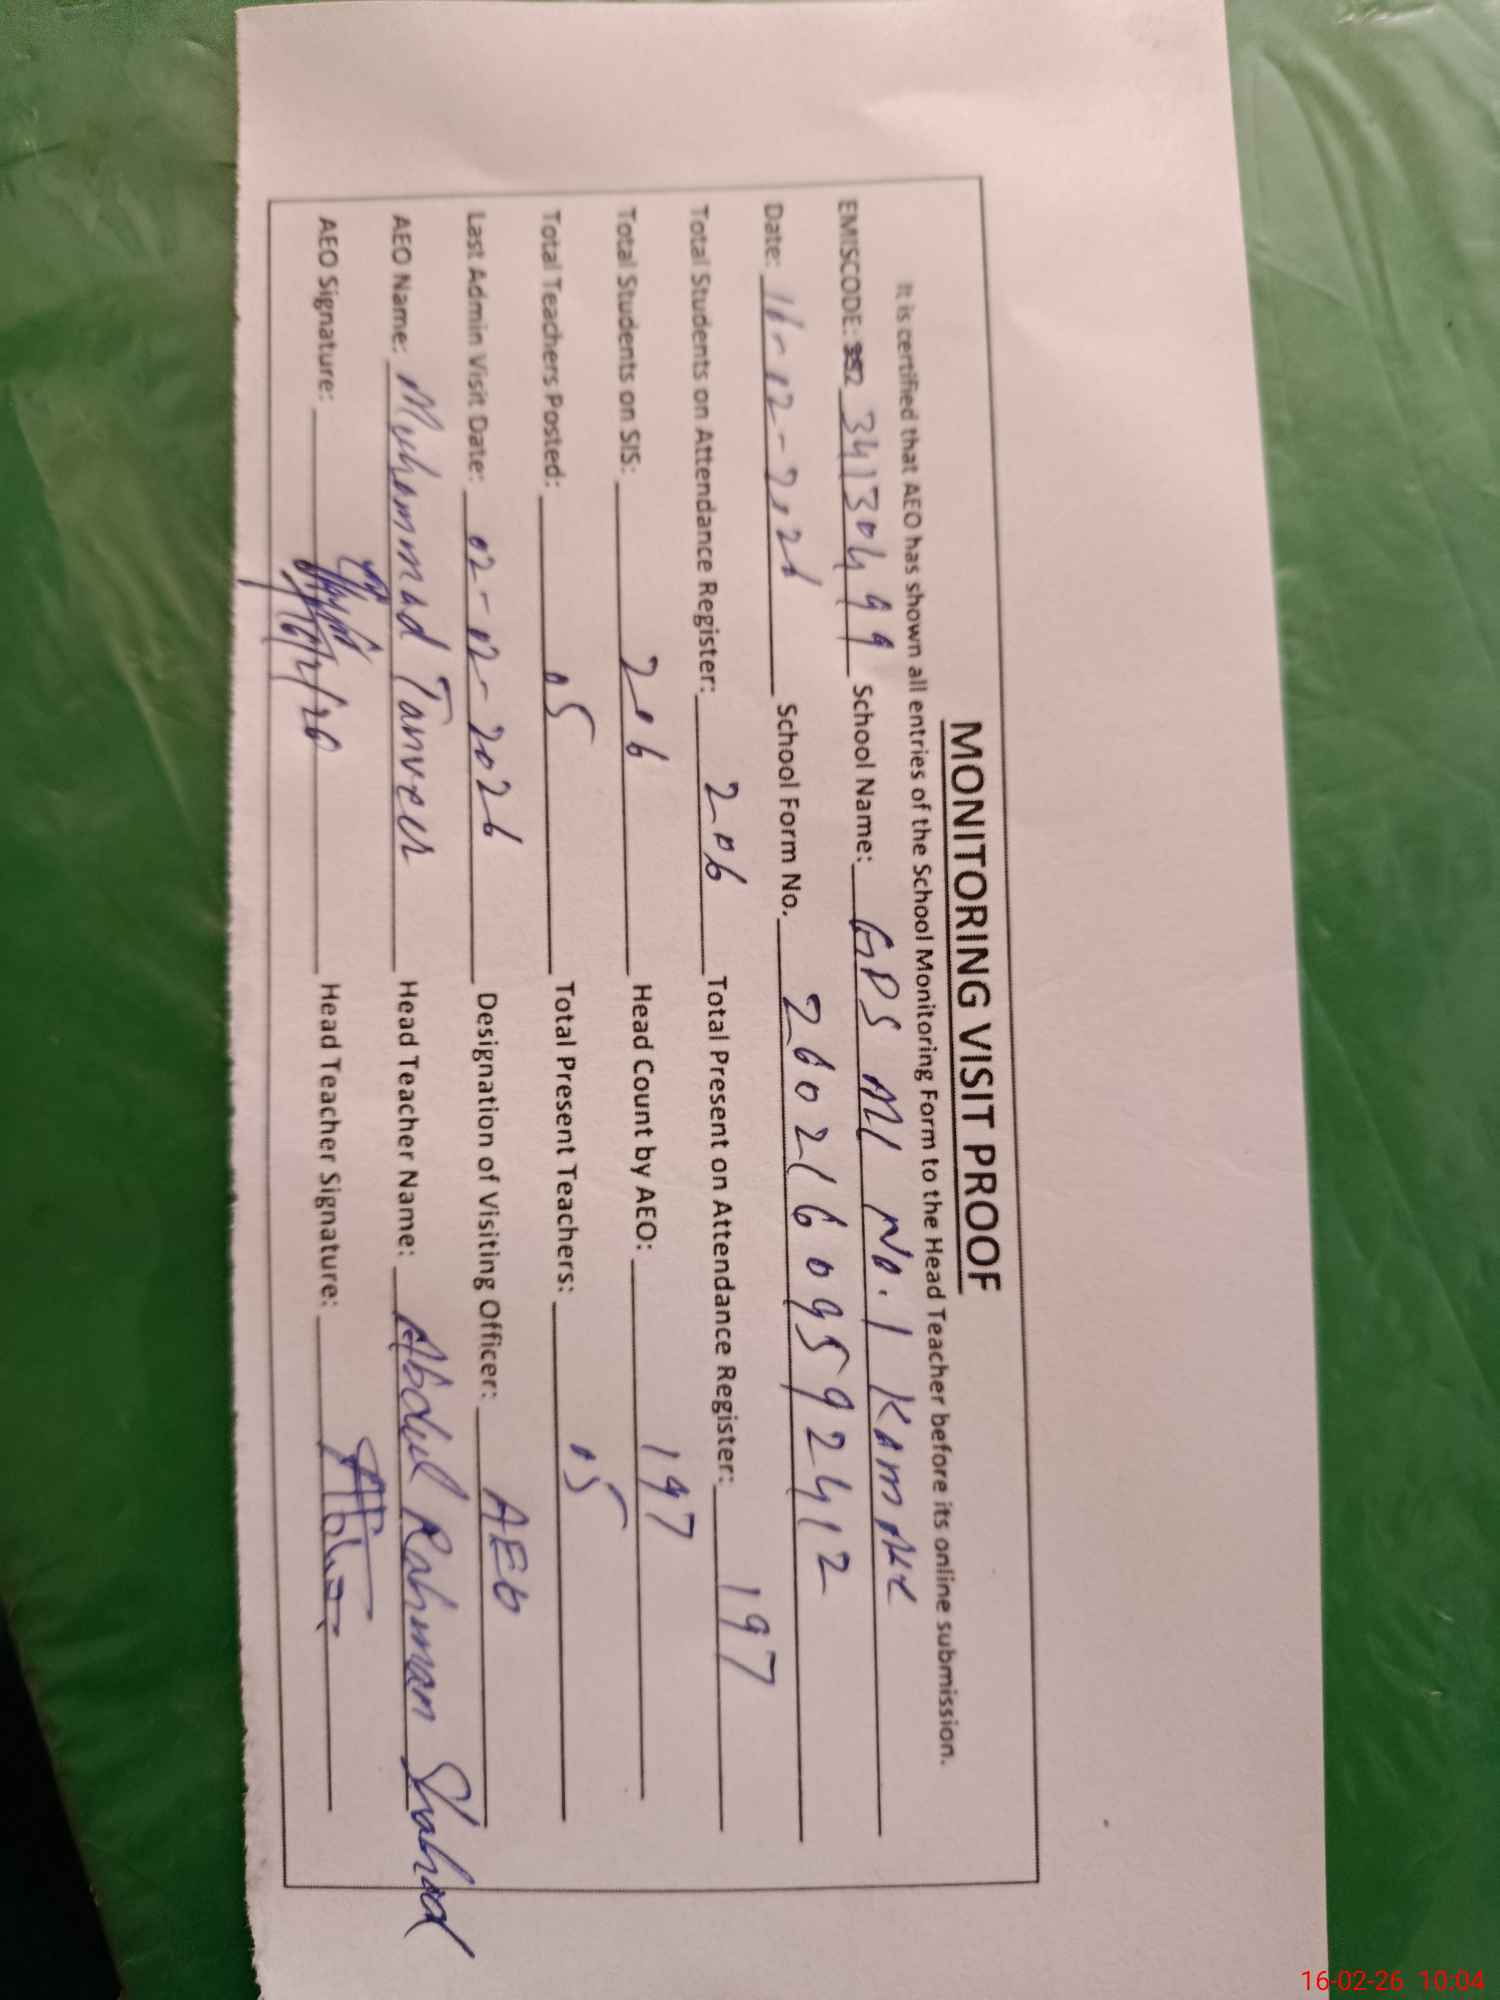 MONITORING VISIT PROOF
It is certified that AEO has shown all entries of the School Monitoring Form to the Head Teacher before its online submission.
EMISCODE: 34130499 School Name: GPS MI No. 1 Kamoke
Date: 16-02-2026 School Form No. 26021609592412
Total Students on Attendance Register: 206 Total Present on Attendance Register: 197
Total Students on SIS: 206 Head Count by AEO: 197
Total Teachers Posted: 05 Total Present Teachers: 05
Last Admin Visit Date: 02-02-2026 Designation of Visiting Officer: AEO
AEO Name: Muhammad Tanveer Head Teacher Name: Abdul Rahman Shahid
AEO Signature: 16/2/26 Head Teacher Signature:
16-02-26 10:04